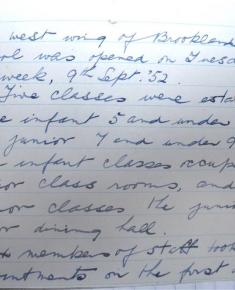 west wing of Brookland
ol was opened on Tuesd
week, 9th Sept. '52.
Five classes were esta
e infant 5 and under
junior 7 and under 9
infant classes occup
ior class rooms, and
ior classes the juni
r dining hall.
members of staff took
ointments on the first